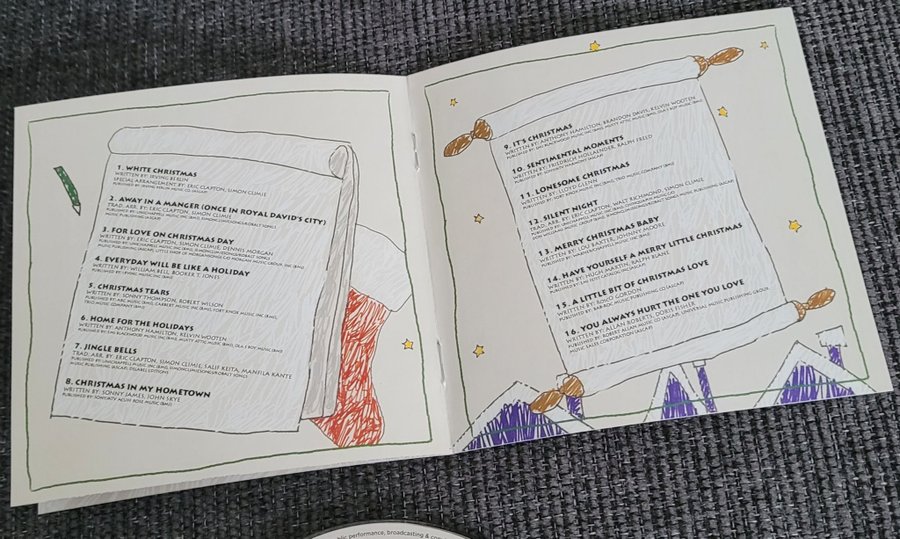 1. WHITE CHRISTMAS
WRITTEN BY: IRVING BERLIN
SPECIAL ARRANGEMENT BY: ERIC CLAPTON, SIMON CLIMIE
PUBLISHED BY: IRVING BERLIN MUSIC CO. (ASCAP)
2. AWAY IN A MANGER (ONCE IN ROYAL DAVID'S CITY)
TRAD. ARR. BY: ERIC CLAPTON, SIMON CLIMIE
3. FOR LOVE ON CHRISTMAS DAY
WRITTEN BY: ERIC CLAPTON, SIMON CLIMIE, DENNIS MORGAN
4. EVERYDAY WILL BE LIKE A HOLIDAY
WRITTEN BY: WILLIAM BELL, BOOKER T. JONES
PUBLISHED BY: IRVING MUSIC INC. (BMI)
5. CHRISTMAS TEARS
WRITTEN BY: SONNY THOMPSON, ROBERT WILSON
6. HOME FOR THE HOLIDAYS
WRITTEN BY: ANTHONY HAMILTON, KELVIN WOOTEN
7. JINGLE BELLS
TRAD. ARR. BY: ERIC CLAPTON, SIMON CLIMIE, SALIF KEITA, MANFILA KANTE
8. CHRISTMAS IN MY HOMETOWN
WRITTEN BY: SONNY JAMES, JOHN SKYE
PUBLISHED BY: SONY/ATV ACUFF ROSE MUSIC (BMI)
9. IT'S CHRISTMAS
WRITTEN BY: ANTHONY HAMILTON, BRANDON DAVIS, KELVIN WOOTEN
10. SENTIMENTAL MOMENTS
WRITTEN BY: FRIEDRICH HOLLAENDER, RALPH FREED
11. LONESOME CHRISTMAS
WRITTEN BY: LLOYD GLENN
12. SILENT NIGHT
TRAD. ARR. BY: ERIC CLAPTON, WALT RICHMOND, SIMON CLIMIE
13. MERRY CHRISTMAS BABY
WRITTEN BY: LOU BAXTER, JOHNNY MOORE
14. HAVE YOURSELF A MERRY LITTLE CHRISTMAS
WRITTEN BY: HUGH MARTIN, RALPH BLANE
15. A LITTLE BIT OF CHRISTMAS LOVE
WRITTEN BY: ROSCO GORDON
16. YOU ALWAYS HURT THE ONE YOU LOVE
WRITTEN BY: ALLAN ROBERTS, DORIS FISHER
MUSIC SALES CORPORATION (ASCAP)
performance, broadcasting &